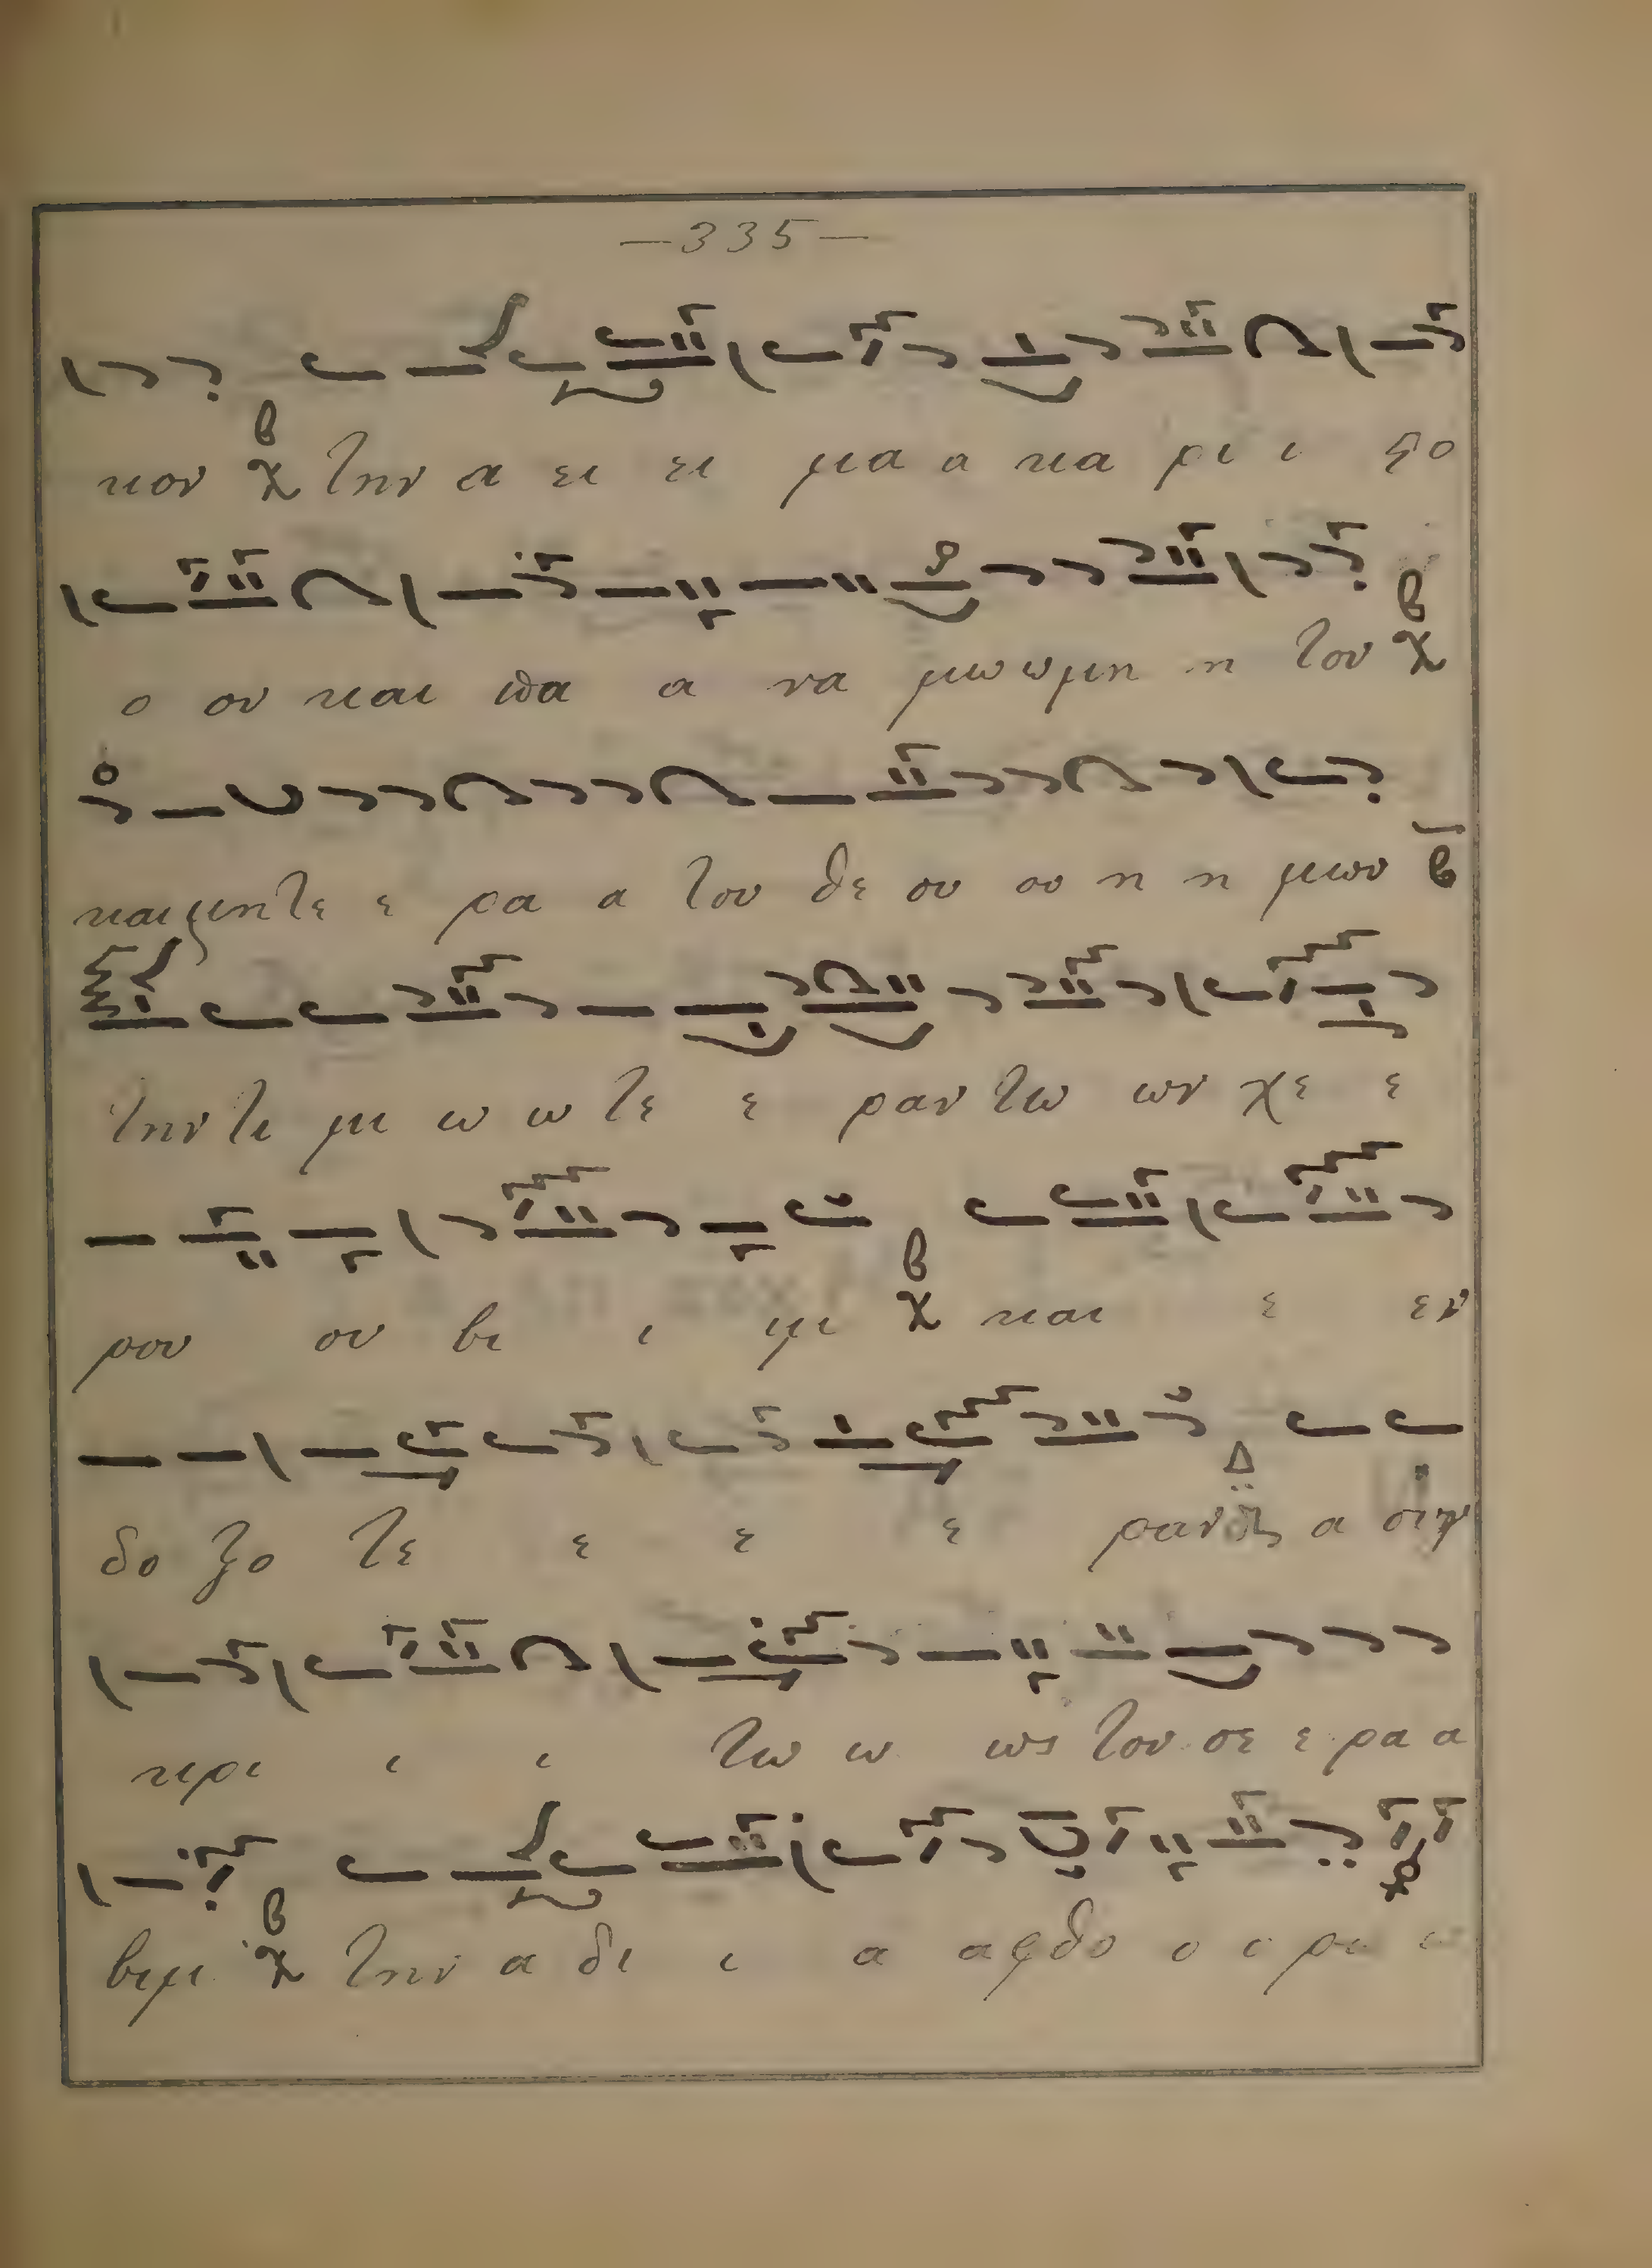 —335—
κον την α ει ει μα α κα ρι ι ϛο
ο ον και πα α να μω ω μη η τον
και μη τε ε ρα α του θε ου ου η η μων
την τι μι ω ω τε ε ραν τω ων χε ε
ρου ου βι ι μι και ε εν
δο ξο τε ε ε ε ραν α συγ
κρι ι ι τω ω ως των σε ε ρα α
βιμ την α δι ι α αφθο ο ο ρω ω